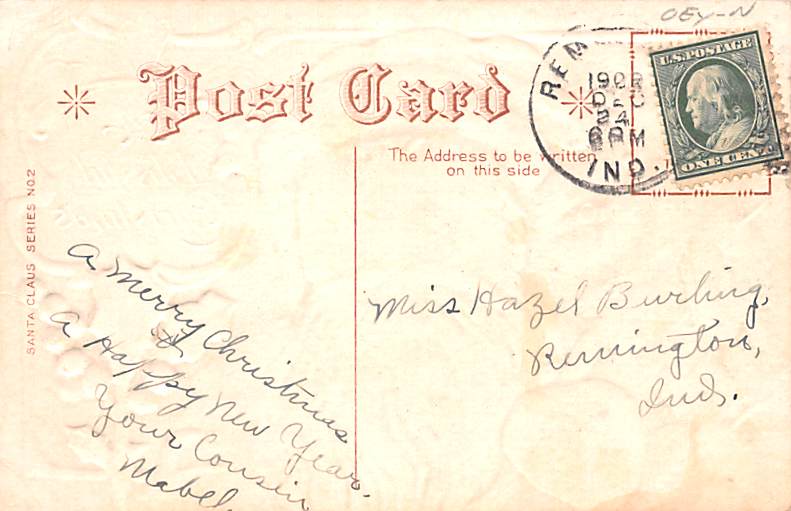 OEY-N
Post Card
The Address to be written
on this side
REM
DEC
24
6 PM
IND.
U.S. POSTAGE
ONE CENT
SANTA CLAUS SERIES NO. 2
A Merry Christmas
&
A Happy New Year.
Your Cousin
Mabel.
Miss Hazel Burling,
Remington,
Ind.